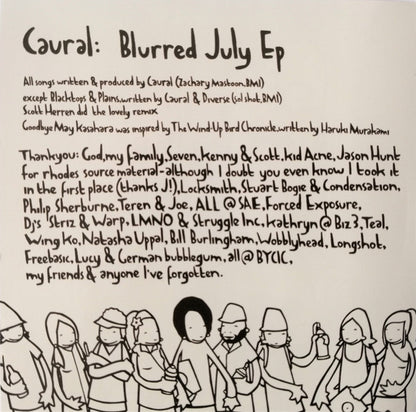 Caural: Blurred July Ep
All songs written & produced by Caural (Zachary Mastoon, BMI)
except Blacktops & Plains, written by Caural & Diverse (sol shot, BMI)
Scott Herren did the lovely remix
Goodbye May Kasahara was inspired by The Wind-Up Bird Chronicle, written by Haruki Murakami
Thankyou: God, my family, Seven, Kenny & Scott, Kid Acne, Jason Hunt
for rhodes source material-although I doubt you even know I took it
in the first place (thanks J!), Locksmith, Stuart Bogie & Condensation,
Philip Sherburne, Teren & Joe, ALL @ SAE, Forced Exposure,
Dj's 'Striz & Warp, LMNO & Struggle Inc, Kathryn @ Biz3, Teal,
Wing Ko, Natasha Uppal, Bill Burlingham, Wobblyhead, Longshot,
Freebasic, Lucy & German bubblegum, all @ BYCIC,
my friends & anyone I've forgotten.